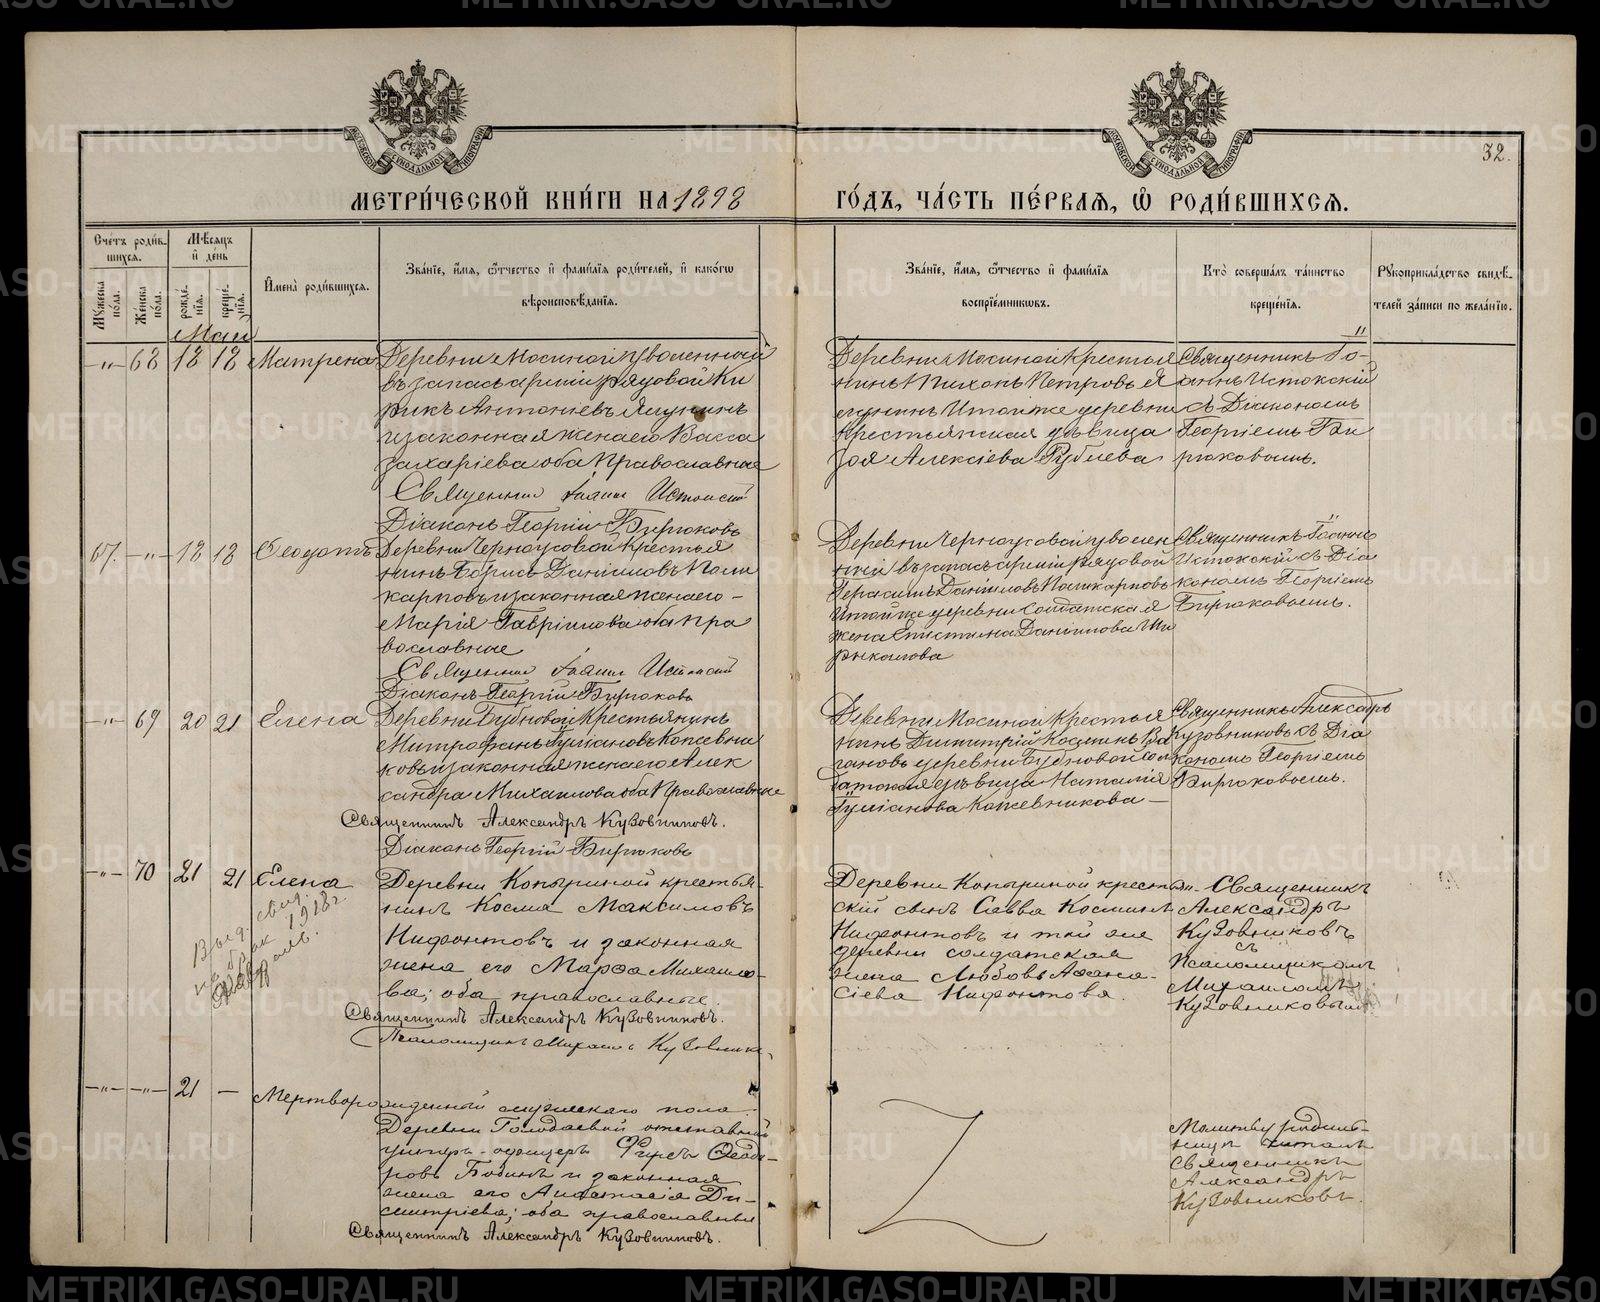 32.
МЕТРИ́ЧЕСКОЙ КНИ́ГИ НА 1898
ГО́ДЪ, ЧА́СТЬ ПЕ́РВАѦ, Ѡ҆ РОДИ́ВШИХСѦ.
Сче́тъ роди́в-
шихсѧ.
Мѣ́сѧцъ
и҆ де́нь
Мꙋ́жеска по́ла.
Же́нска по́ла.
рожде́-нїѧ.
креще́-нїѧ.
И҆мена̀ роди́вшихсѧ.
Зва́нїе, и҆́мѧ, ѻ҆́тчество и҆ фами́лїѧ роди́телей, и҆ како́гѡ
вѣроисповѣ́данїѧ.
Зва́нїе, и҆́мѧ, ѻ҆́тчество и҆ фами́лїѧ
воспрїе́мникѡвъ.
Кто̀ соверша́лъ та́инство
креще́нїѧ.
Рꙋкоприкла́дство свидѣ́-
телей за́писи по жела́нїю.
Май
-"- 68 18 18 Матрена
Деревни Мосиной уволенный
въ запасъ арміи рядовой Ки
рикъ Антоніевъ Ягунинъ
и законная жена его Васса
Захаріева оба Православные
Священник Іоанн Истокскій
Діаконъ Георгій Бирюковъ
Деревни Мосиной Крестья
нинъ Тихонъ Петровъ Я
гунинъ и той же деревни
Крестьянская дѣвица
Зоя Алексіева Рублева
Священникъ Іо-
аннъ Истокскій
съ Діакономъ
Георгіемъ Би
рюковымъ.
67. -"- 18 18 Ѳеодотъ
Деревни Черноусовой Крестья
нинъ Борисъ Даніиловъ Поли
карповъ и законная жена его -
Марія Гавріилова оба Пра
вославные
Священник Іоанн Истокскій
Діаконъ Георгій Бирюковъ
Деревни Черноусовой уволен
ный въ запасъ арміи Рядовой
Герасимъ Даніиловъ Поликарповъ
и той же деревни Солдатская
жена Епистина Даніилова Ши
рыкалова
Священникъ Іоаннъ
Истокскій съ Діа
кономъ Георгіемъ
Бирюковымъ.
-"- 69 20 21 Елена
Деревни Бубновой Крестьянинъ
Митрофанъ Іуліановъ Кожевни
ковъ и законная жена его Алек
сандра Михаилова оба Православные
Священникъ Александръ Кузовниковъ.
Діаконъ Георгій Бирюковъ
Деревни Мосиной Крестья
нинъ Димитрій Косминъ Ва
гановъ деревни Бубновой Сол
датская дѣвица Наталія
Іуліанова Кожевникова -
Священникъ Александръ
Кузовниковъ съ Діа
кономъ Георгіемъ
Бирюковымъ.
-"- 70 21 21 Елена
Выд. свид.
1918 г.
Деревни Копыриной крестья-
нинъ Косма Максимовъ
Нифонтовъ и законная
жена его Марѳа Михаило-
ва; оба православные.
Священникъ Александръ Кузовниковъ.
Псаломщикъ Михаилъ Кузовников
Деревни Копыриной крестьян-
скій сынъ Савва Косминъ
Нифонтовъ и той же
деревни солдатская
жена Любовь Аѳана-
сіева Нифонтова.
Священникъ
Александръ
Кузовниковъ
съ
Псаломщикомъ
Михаиломъ
Кузовниковымъ
-"- -"- 21 - Мертворожденный мужескаго пола.
Деревни Голодаевой отставный
унтеръ-офицеръ Фирсъ Ѳеодо-
ровъ Бабинъ и законная
жена его Анастасія Ди-
митріева; оба православные
Священникъ Александръ Кузовниковъ.
Молитву родиль-
ницѣ читалъ
Священникъ
Александръ
Кузовниковъ.
METRIKI.GASO-URAL.RU